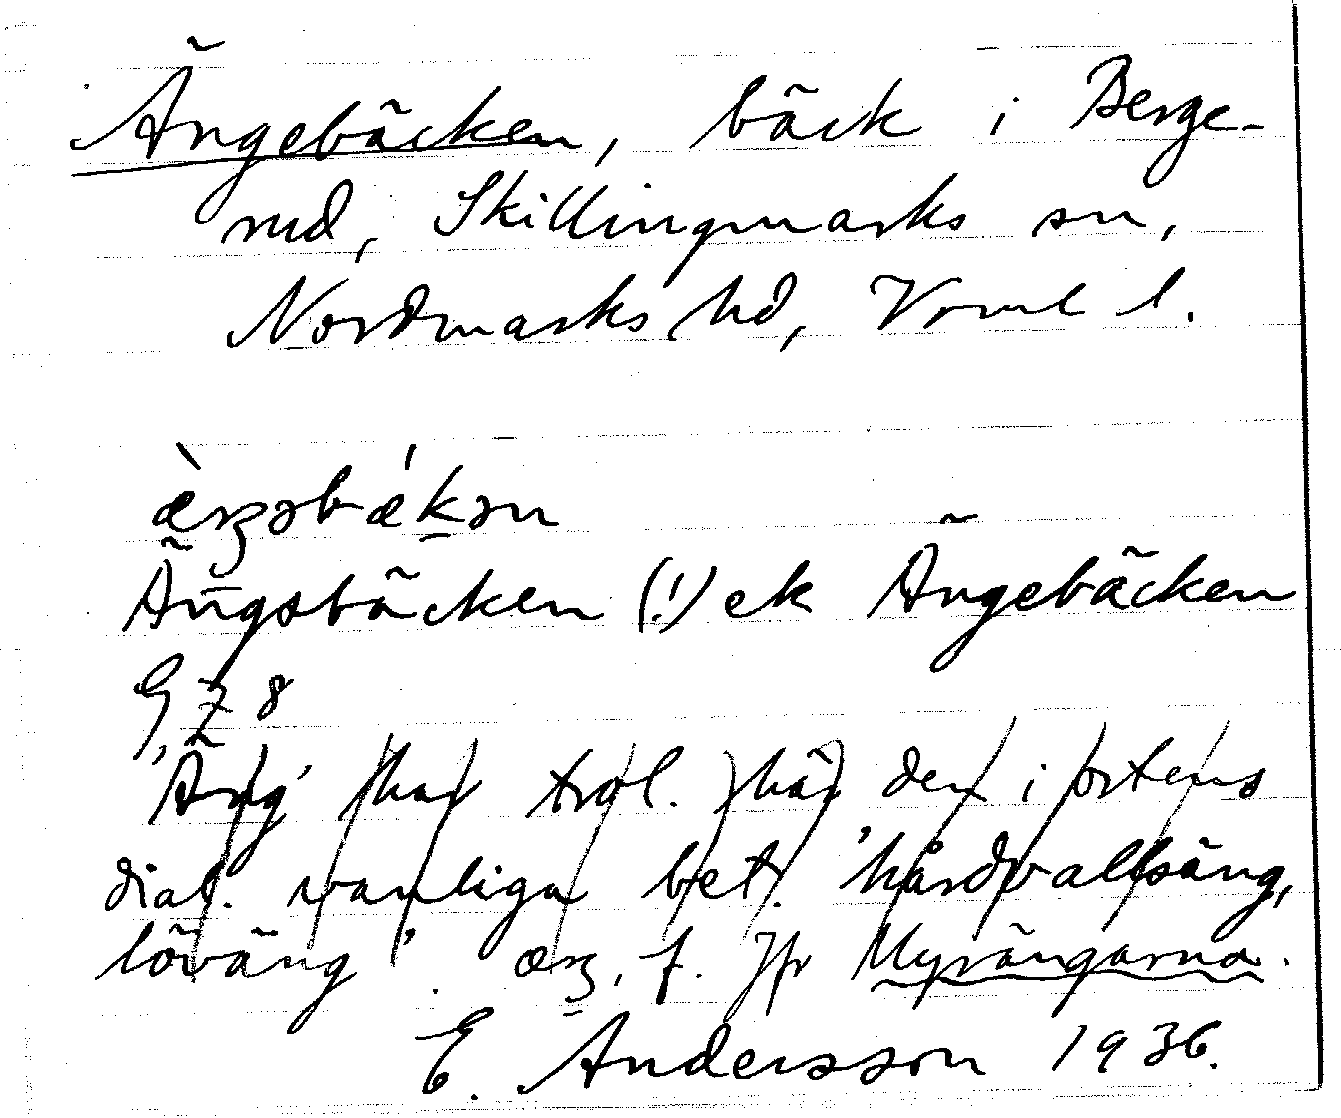 Ängebäcken, bäck i Berge-
rud, Skillingmarks sn,
Nordmarks hd, Verml l.
æ̀ŋəbǽkən
Ängsbäcken (!) ek Ängebäcken
G Z 8
'Äng' har trol. här den i ortens
dial. vanliga bet. 'hårdvallsäng,
löväng'. æŋ, f. Jfr Myrängarna.
E. Andersson 1936.